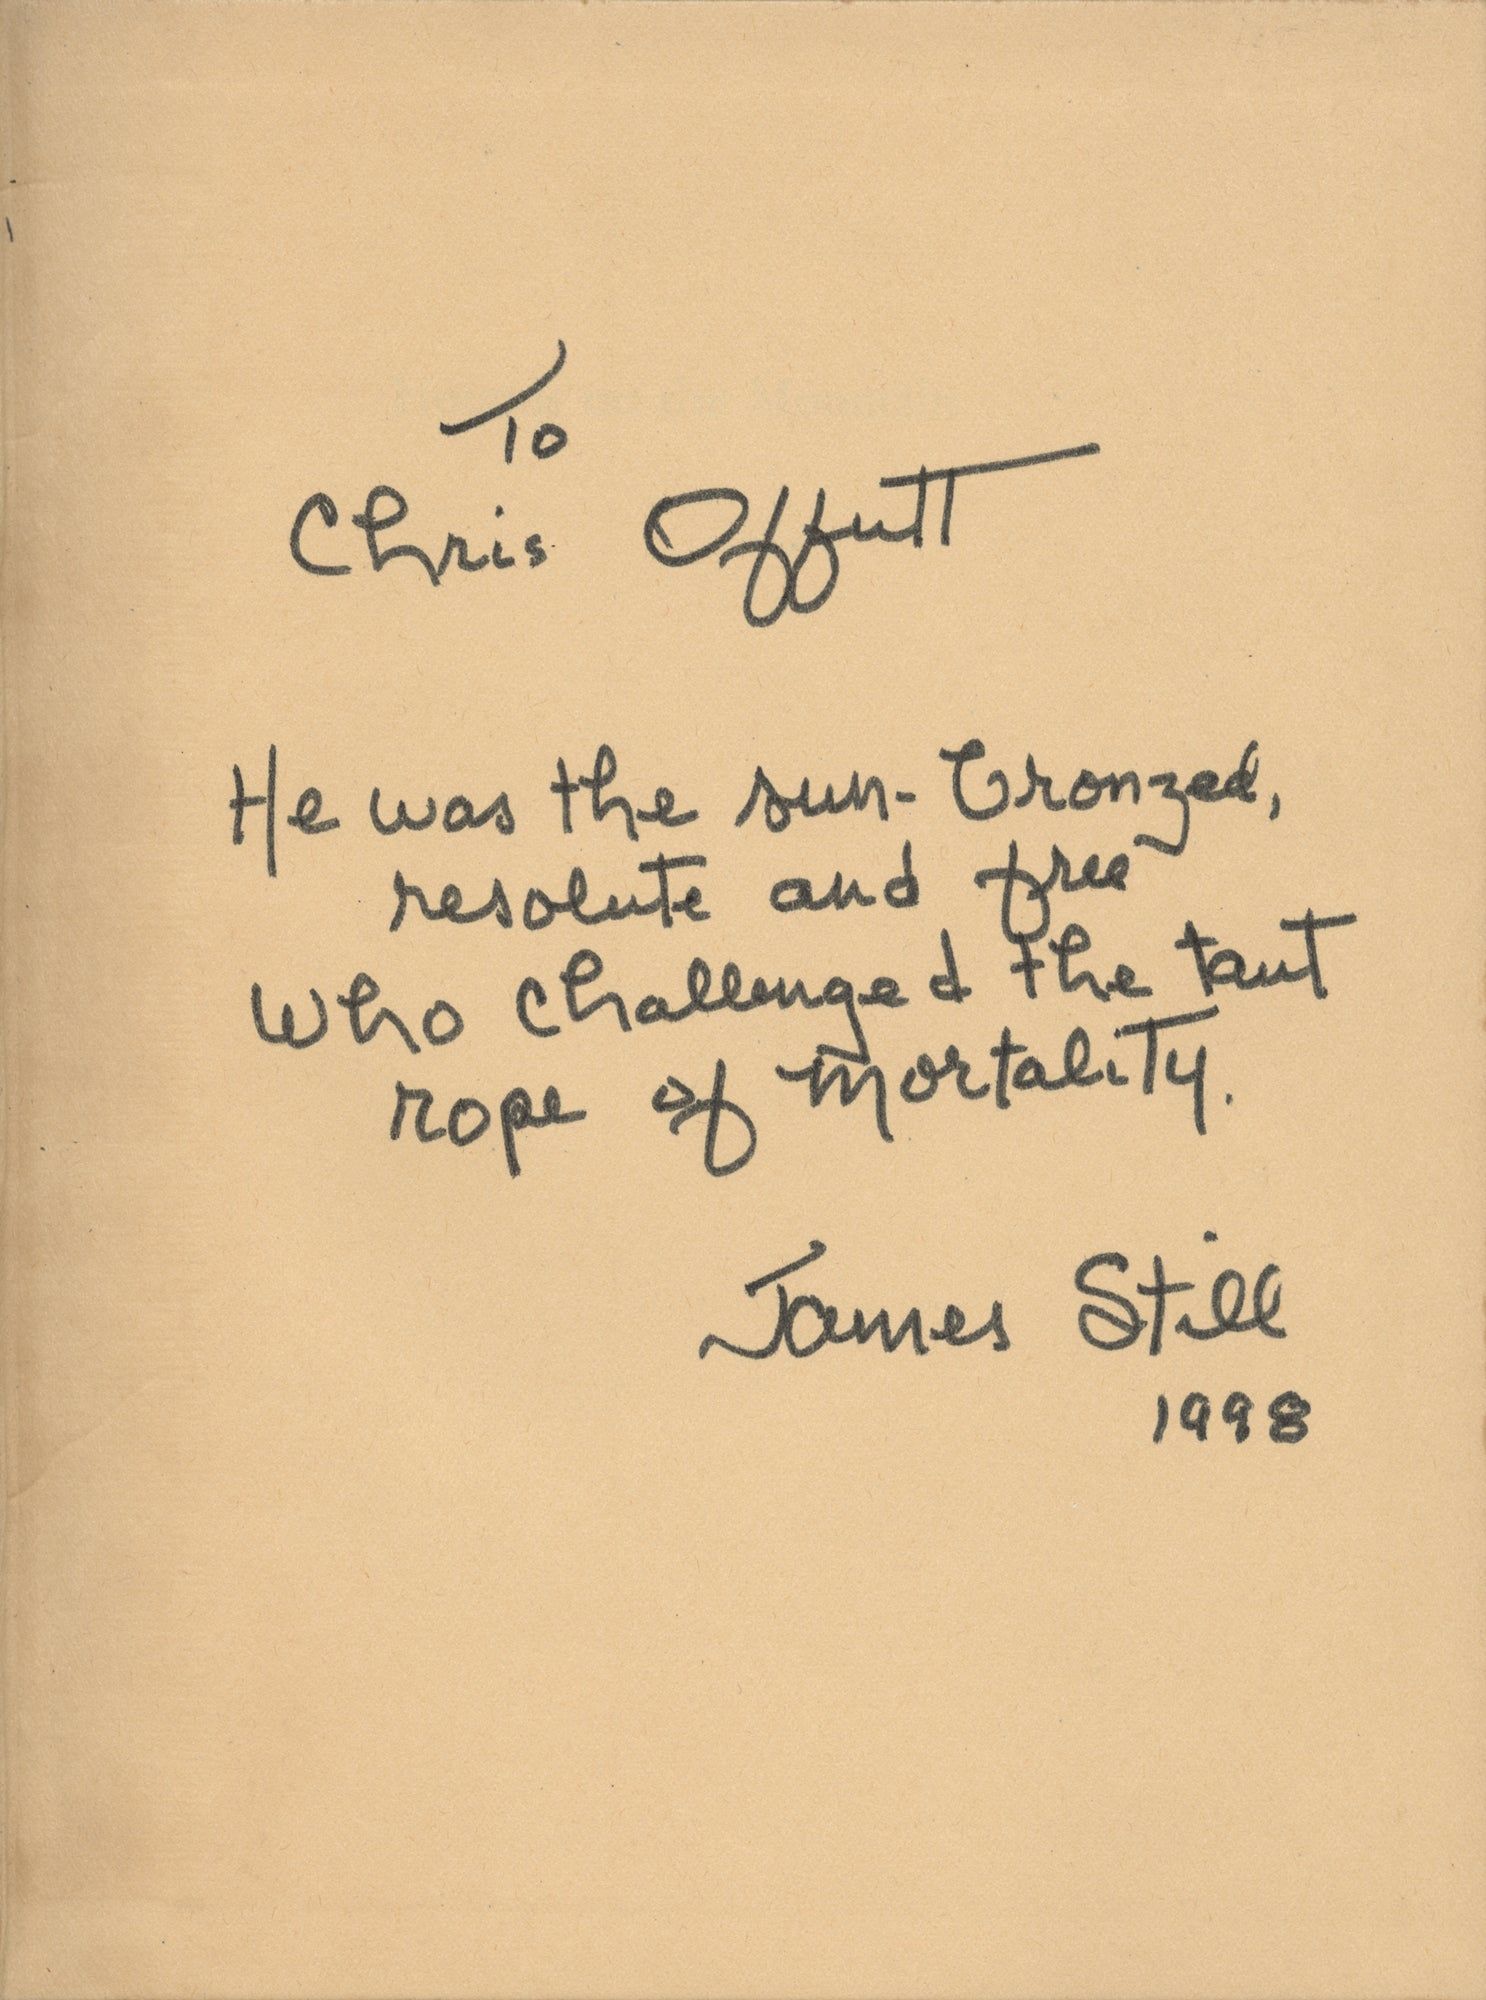 To
Chris Offutt
He was the sun-bronzed,
resolute and free
Who challenged the taut
rope of mortality.
James Still
1998